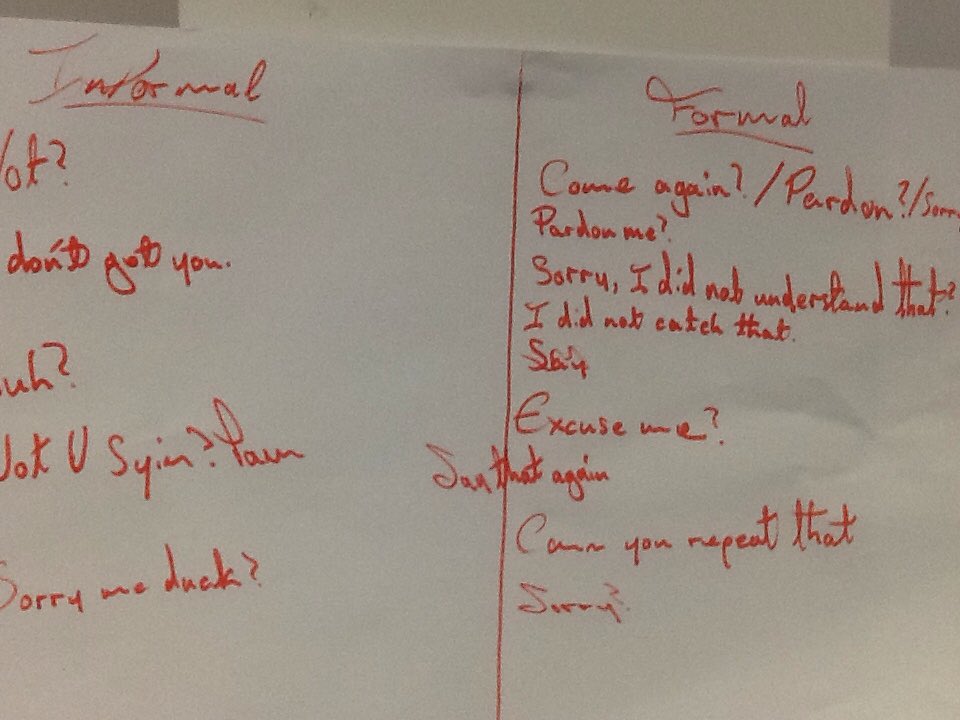 Informal
ot?
don't got you.
uh?
ot U Syin?
Sorry me duck?
Formal
Come again? / Pardon? / Sorry
Pardon me?
Sorry, I did not understand that?
I did not catch that.
Excuse me?
Say that again
Can you repeat that
Sorry?